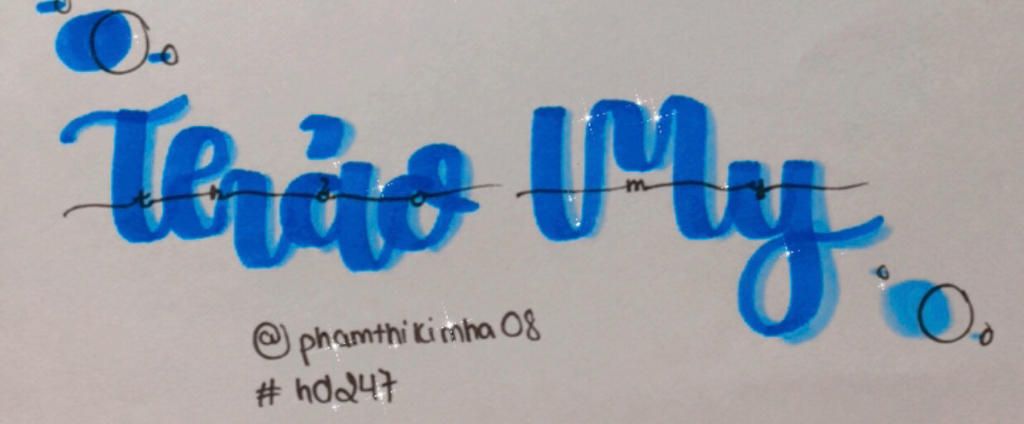 Thảo My
thảo my
@phamthikimha08
# hd247